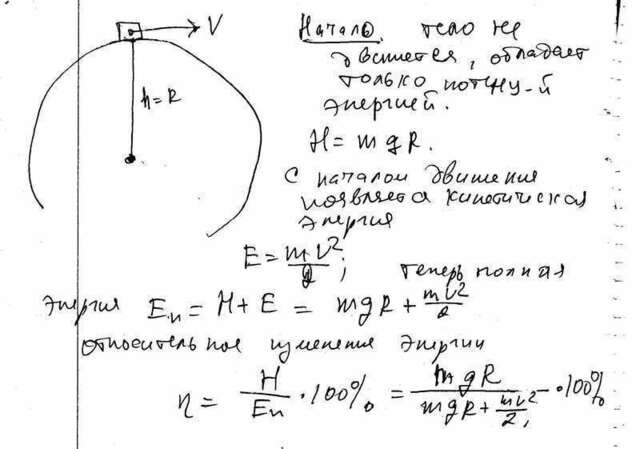 V
h=R
Начало. тело не
движется, обладает
только потенц-й
энергией.
H = mgR.
С началом движения
появляется кинетическая
энергия
E = mV²/2;
теперь полная
энергия Eп = H + E = mgR + mV²/2
относительное изменение энергии
η = H/Eп · 100% = mgR/(mgR + mV²/2) · 100%